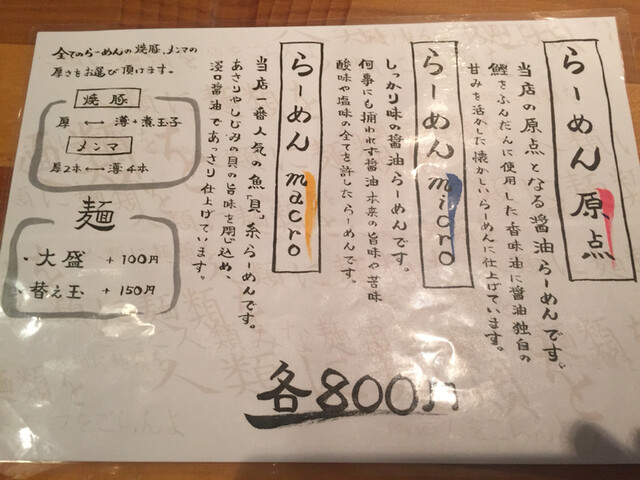 らーめん 原点
当店の原点となる醤油らーめんです。
鰹をふんだんに使用した香味油に醤油独自の
甘みを活かした懐かしいらーめんに仕上げています。
らーめん micro
しっかり味の醤油らーめんです。
何事にも捕われず醤油本来の旨味や苦味
酸味や塩味の全てを許したらーめんです。
らーめん macro
当店一番人気の魚「貝」系らーめんです。
あさりやしじみの貝の旨味を閉じ込め、
淡口醤油であっさり仕上げています。
全てのらーめんの焼豚、メンマの
厚さをお選び頂けます。
焼豚
厚 ←→ 薄+煮玉子
メンマ
厚2本 ←→ 薄4本
麺
・大盛 +100円
・替え玉 +150円
各800円